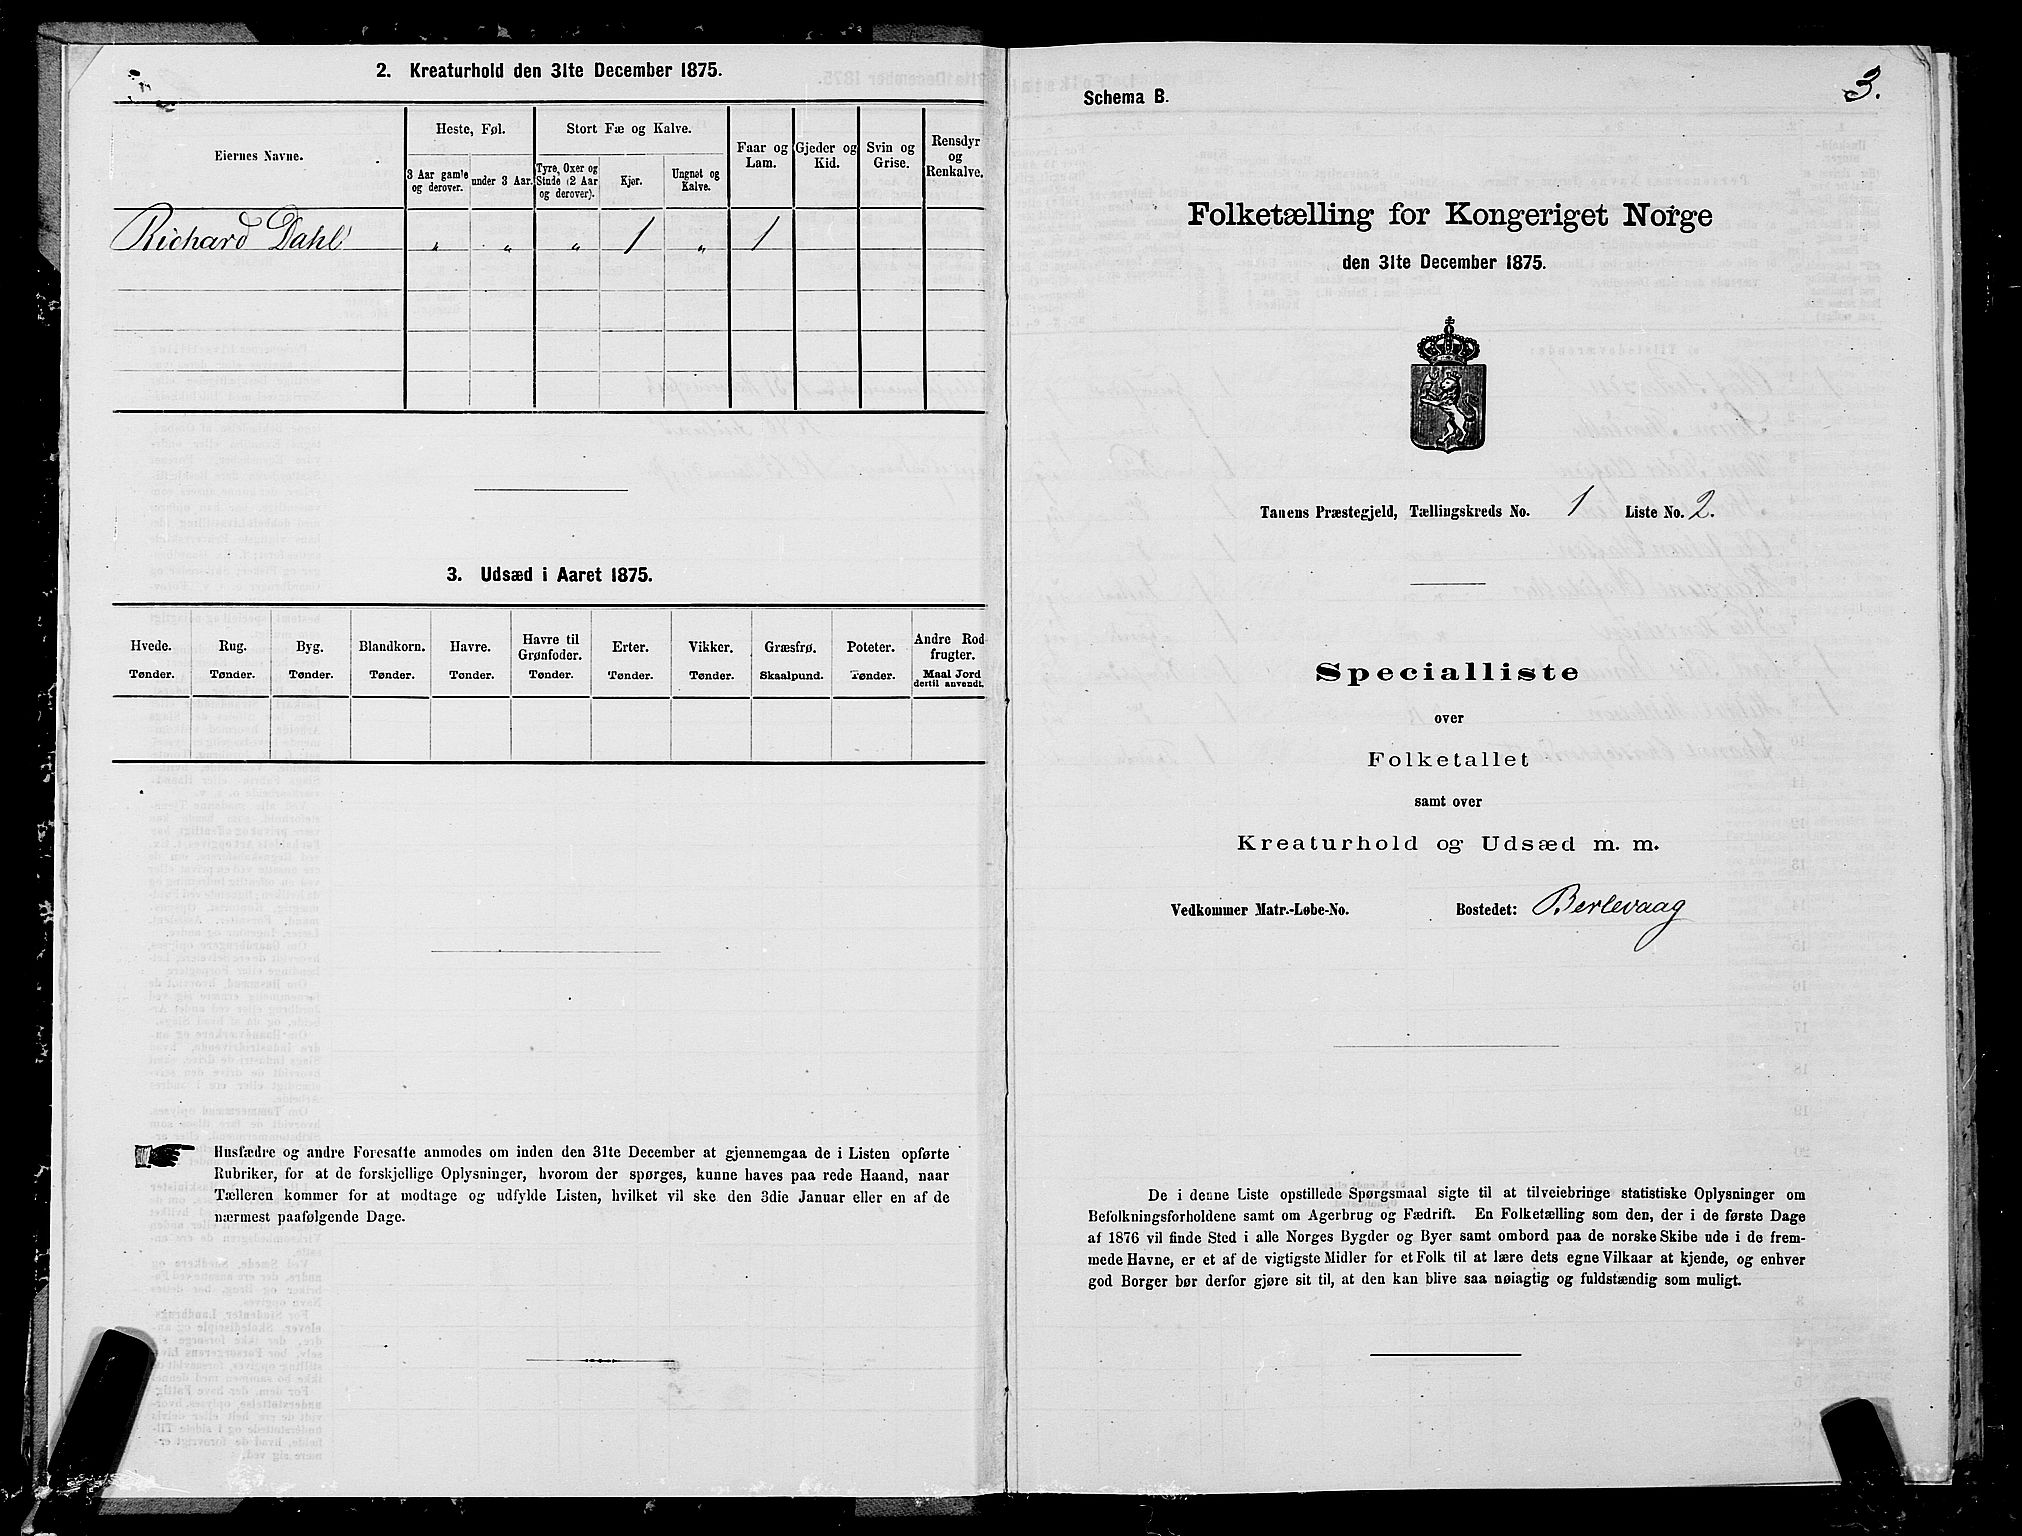 2. Kreaturhold den 31te December 1875.
Eiernes Navne.
Heste, Føl.
3 Aar gam'e og derover.
under 3 Aar.
Stort Fæ og Kalve.
Tyre, Oxer og Stude (2 Aar og derover).
Kjør.
Ungnøt og Kalve.
Faar og Lam.
Gjeder og Kid.
Svin og Grise.
Rensdyr og Renkalve.
Richard Dahl " " " 1 " 1
3. Udsæd i Aaret 1875.
Hvede. Tønder.
Rug. Tønder.
Byg. Tønder.
Blandkorn. Tønder.
Havre. Tønder.
Havre til Grønfoder. Tønder.
Erter. Tønder.
Vikker. Tønder.
Græsfrø. Skaalpund.
Poteter. Tønder.
Andre Rodfrugter. Maal Jord dertil anvendt.
Husfædre og andre Foresatte anmodes om inden den 31te December at gjennemgaa de i Listen opførte
Rubriker, for at de forskjellige Oplysninger, hvorom der spørges, kunne haves paa rede Haand, naar
Tælleren kommer for at modtage og udfylde Listen, hvilket vil ske den 3die Januar eller en af de
nærmest paafølgende Dage.
Schema B.
3.
Folketælling for Kongeriget Norge
den 31te December 1875.
Tanens Præstegjeld, Tællingskreds No. 1 Liste No. 2.
Specialliste
over
Folketallet
samt over
Kreaturhold og Udsæd m. m.
Vedkommer Matr.-Løbe-No. Bostedet: Berlevaag
De i denne Liste opstillede Spørgsmaal sigte til at tilveiebringe statistiske Oplysninger om
Befolkningsforholdene samt om Agerbrug og Fædrift. En Folketælling som den, der i de første Dage
af 1876 vil finde Sted i alle Norges Bygder og Byer samt ombord paa de norske Skibe ude i de frem-
mede Havne, er et af de vigtigste Midler for et Folk til at lære dets egne Vilkaar at kjende, og enhver
god Borger bør derfor gjøre sit til, at den kan blive saa nøiagtig og fuldstændig som muligt.